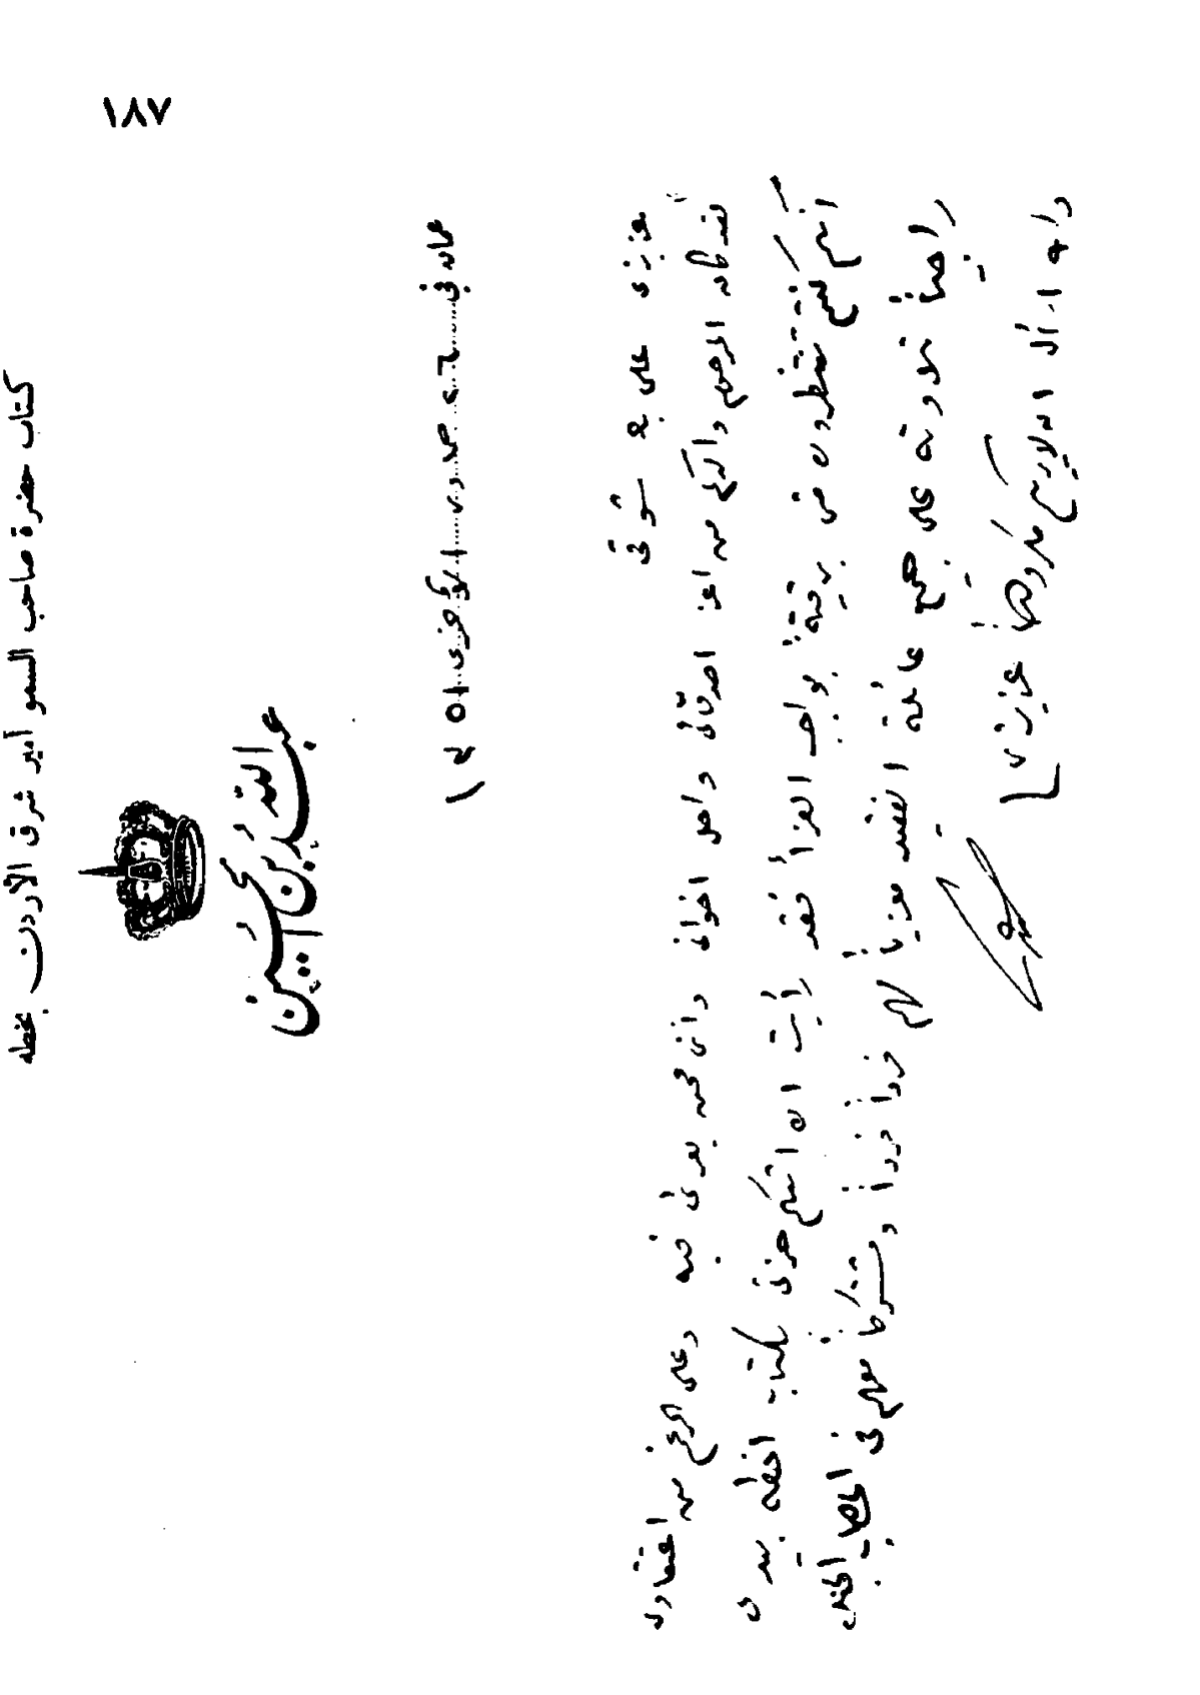 ١٨٧
كتاب حضرة صاحب السمو أمير شرق الأردن بخطه
عبد الله بن الحسين
عمان في ٦ جمادى الآخرى ١٣٥١
عزيزى على بك شوقى
لقد كان المرحوم والدكم من اعز اصدقائى واجل اخوانى وانى محزن بعزائى فيه وعلى الرغم من اعتقادى
انكم كنتم تنتظرون منى برقية بواجب العزأ فقد رأيت ان اشكى حزنى بكتاب اخطه بيدى
راجياً تلاوته على جميع عائلة الفقيد معزياً لهم فرداً فرداً ومشتركاً معهم فى المصاب الجلل
والله اسأل ان لا يريكم مكروهاً عزيزى